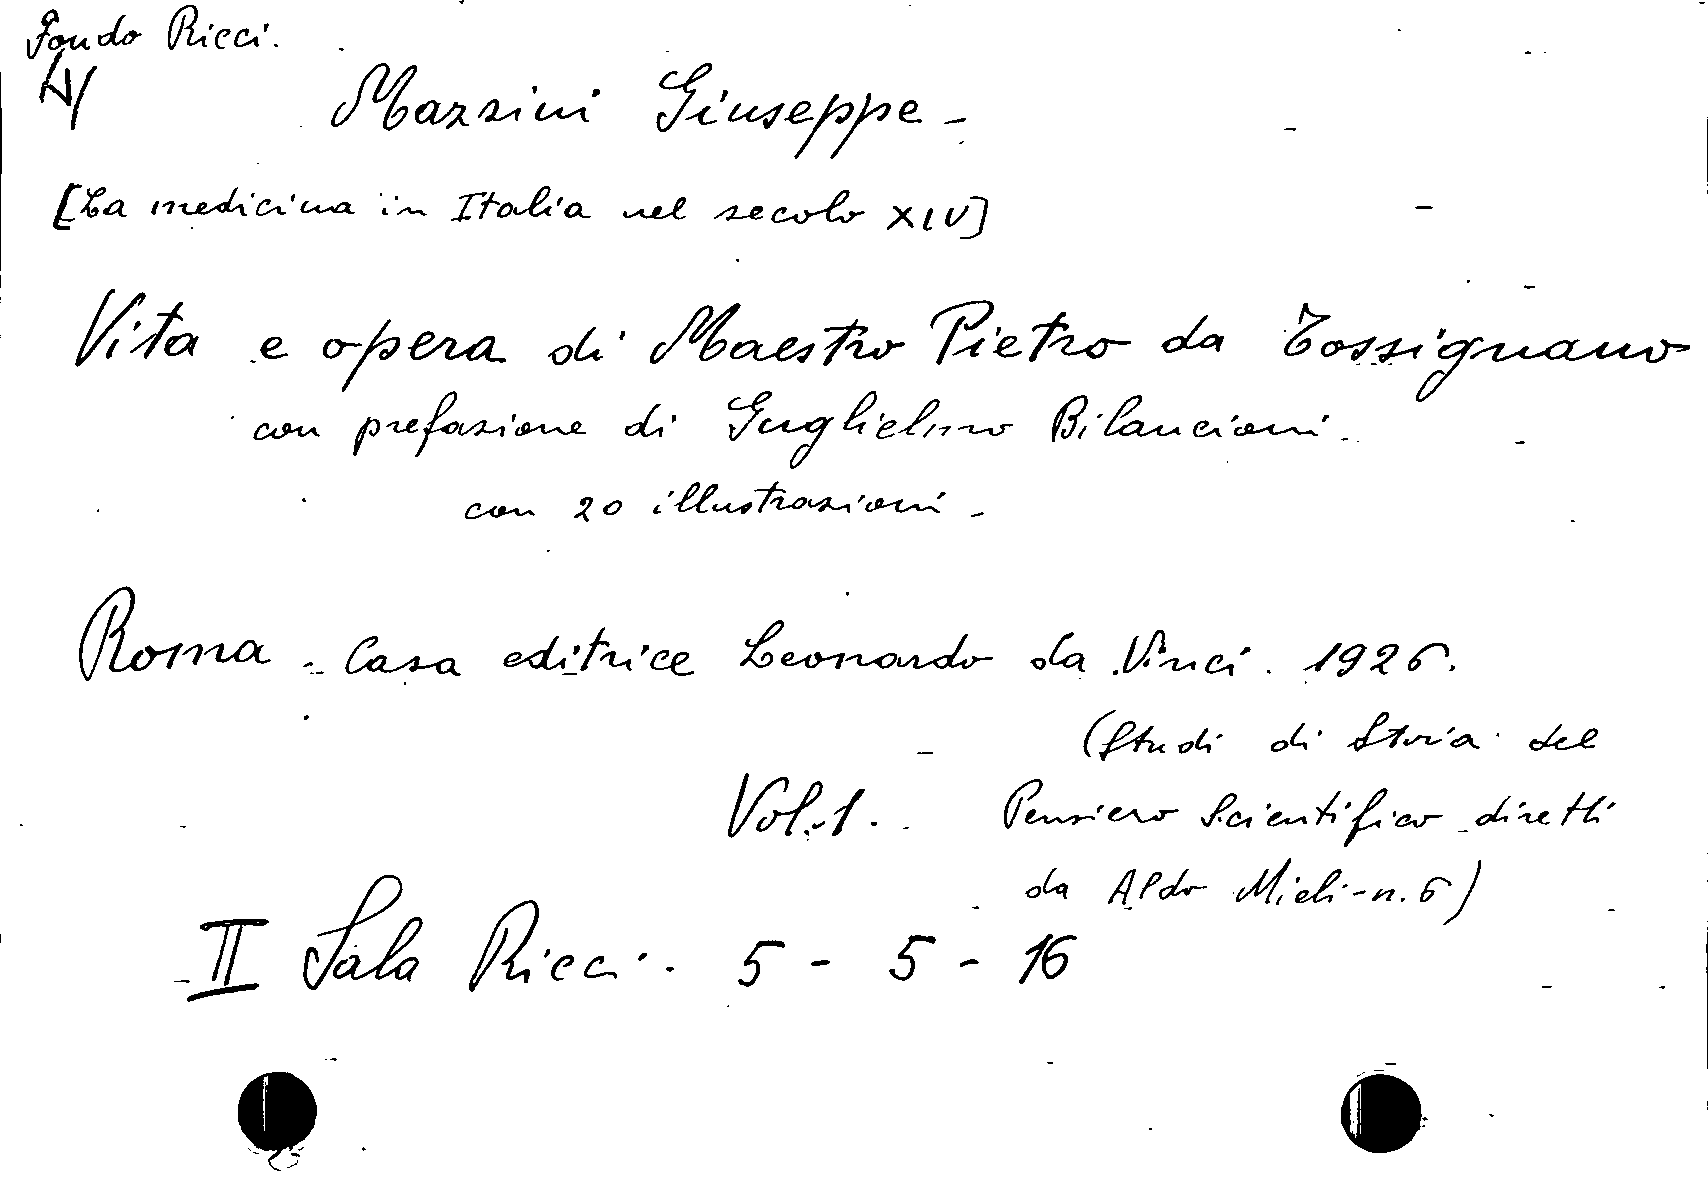 Fondo Ricci.
Mazzini Giuseppe -
[La medicina in Italia nel secolo XIV]
Vita e opera di Maestro Pietro da Tossignano
con prefazione di Guglielmo Bilancioni.
con 20 illustrazioni -
Roma - Casa editrice Leonardo da Vinci. 1926.
(Studi di Storia del
Vol. 1. Pensiero Scientifico diretti
da Aldo Mieli - n. 6)
II Sala Ricci. 5 - 5 - 16